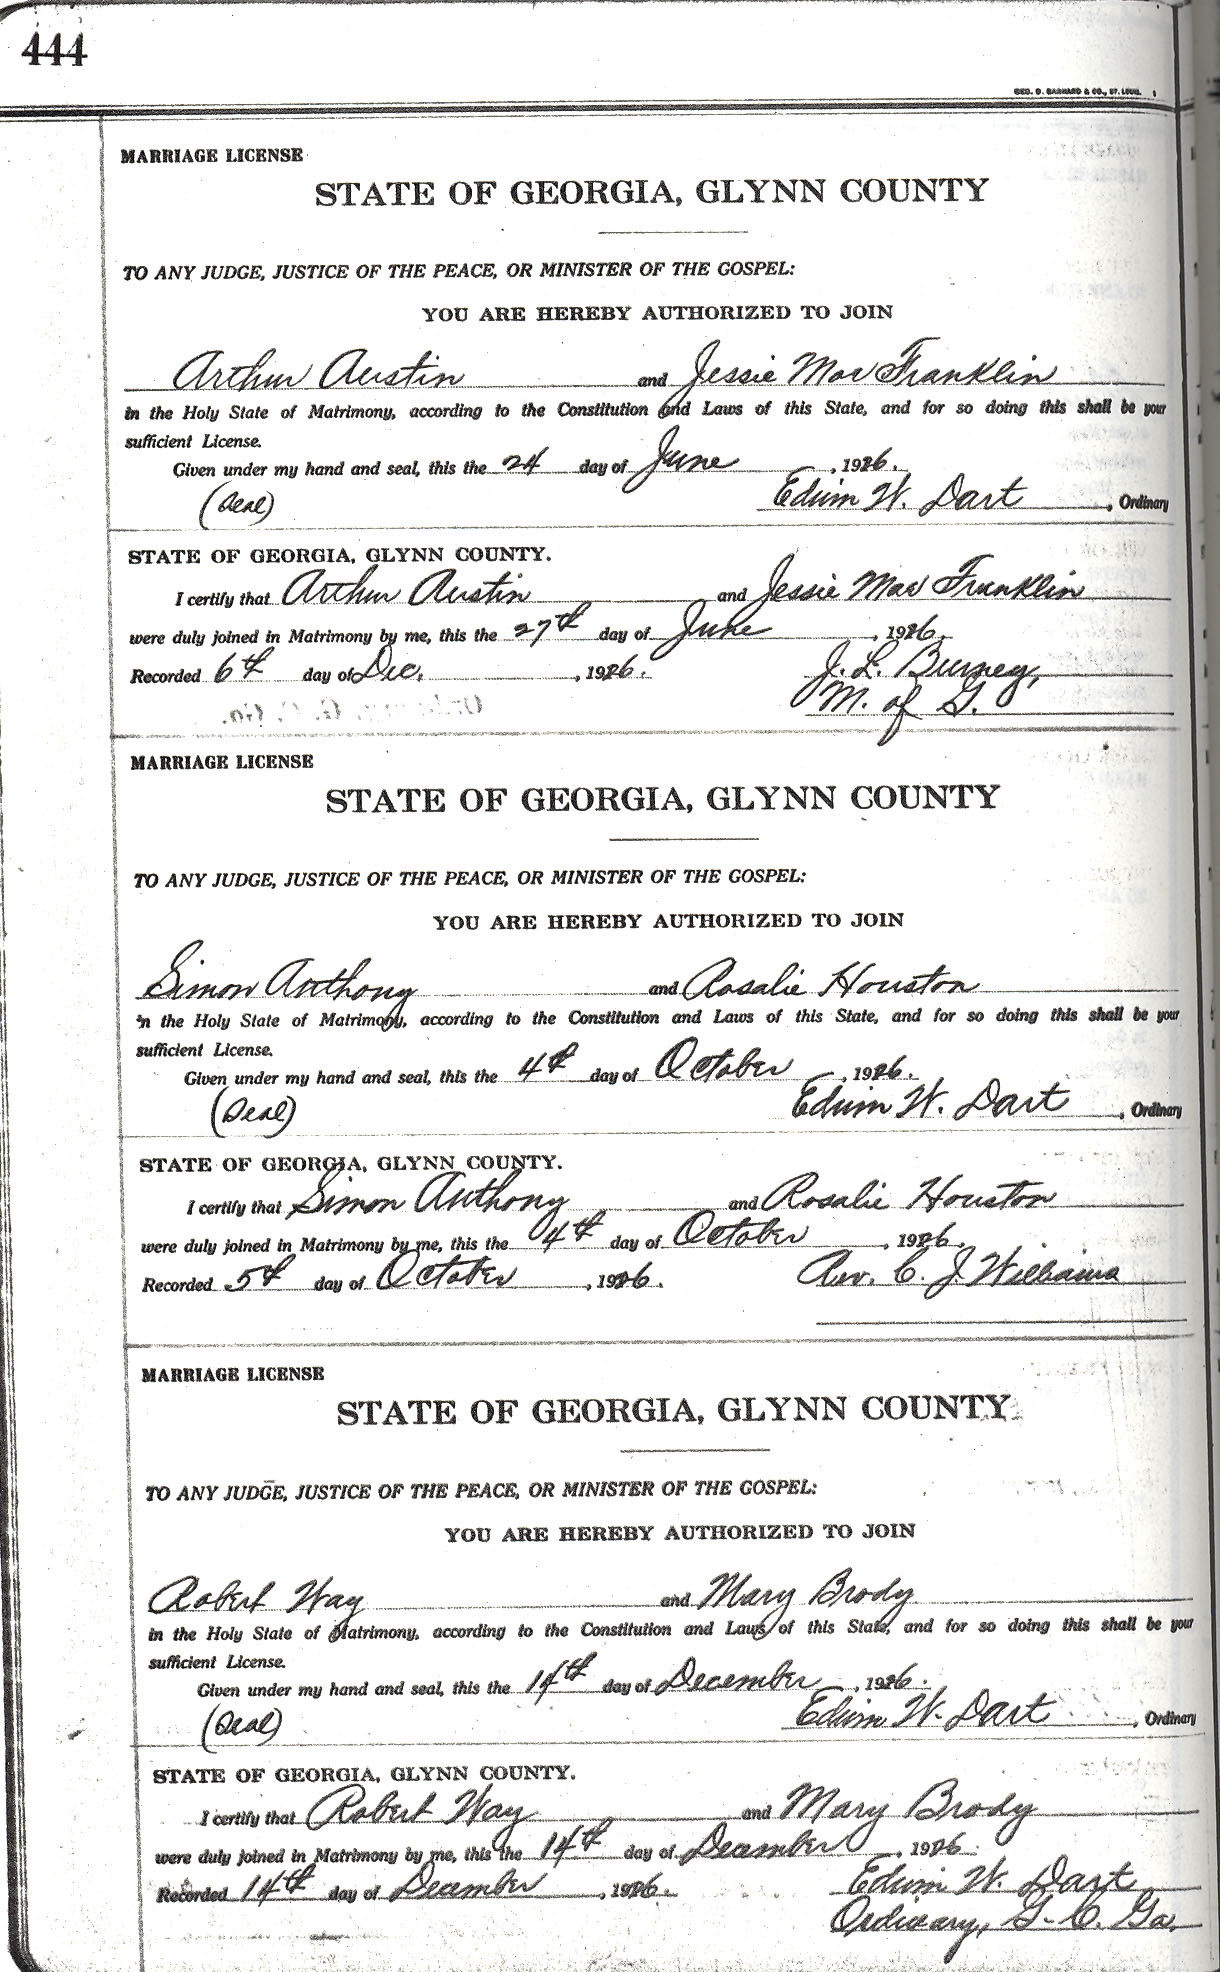 444
GEO. D. BARNARD & CO., ST. LOUIS.
MARRIAGE LICENSE
STATE OF GEORGIA, GLYNN COUNTY
TO ANY JUDGE, JUSTICE OF THE PEACE, OR MINISTER OF THE GOSPEL:
YOU ARE HEREBY AUTHORIZED TO JOIN
Arthur Austin and Jessie Mae Franklin
in the Holy State of Matrimony, according to the Constitution and Laws of this State, and for so doing this shall be your
sufficient License.
Given under my hand and seal, this the 24 day of June, 1926.
(Seal) Edwin W. Dart, Ordinary
STATE OF GEORGIA, GLYNN COUNTY.
I certify that Arthur Austin and Jessie Mae Franklin
were duly joined in Matrimony by me, this the 27th day of June, 1926.
Recorded 6th day of Dec., 1926. J. L. Burney,
M. of G.
MARRIAGE LICENSE
STATE OF GEORGIA, GLYNN COUNTY
TO ANY JUDGE, JUSTICE OF THE PEACE, OR MINISTER OF THE GOSPEL:
YOU ARE HEREBY AUTHORIZED TO JOIN
Simon Anthony and Rosalie Houston
in the Holy State of Matrimony, according to the Constitution and Laws of this State, and for so doing this shall be your
sufficient License.
Given under my hand and seal, this the 4th day of October, 1926.
(Seal) Edwin W. Dart, Ordinary
STATE OF GEORGIA, GLYNN COUNTY.
I certify that Simon Anthony and Rosalie Houston
were duly joined in Matrimony by me, this the 4th day of October, 1926.
Recorded 5th day of October, 1926. Rev. C. J. Williams
MARRIAGE LICENSE
STATE OF GEORGIA, GLYNN COUNTY
TO ANY JUDGE, JUSTICE OF THE PEACE, OR MINISTER OF THE GOSPEL:
YOU ARE HEREBY AUTHORIZED TO JOIN
Robert Way and Mary Brody
in the Holy State of Matrimony, according to the Constitution and Laws of this State, and for so doing this shall be your
sufficient License.
Given under my hand and seal, this the 14th day of December, 1926.
(Seal) Edwin W. Dart, Ordinary
STATE OF GEORGIA, GLYNN COUNTY.
I certify that Robert Way and Mary Brody
were duly joined in Matrimony by me, this the 14th day of December, 1926.
Recorded 14th day of December, 1926. Edwin W. Dart
Ordinary, G. C. Ga.